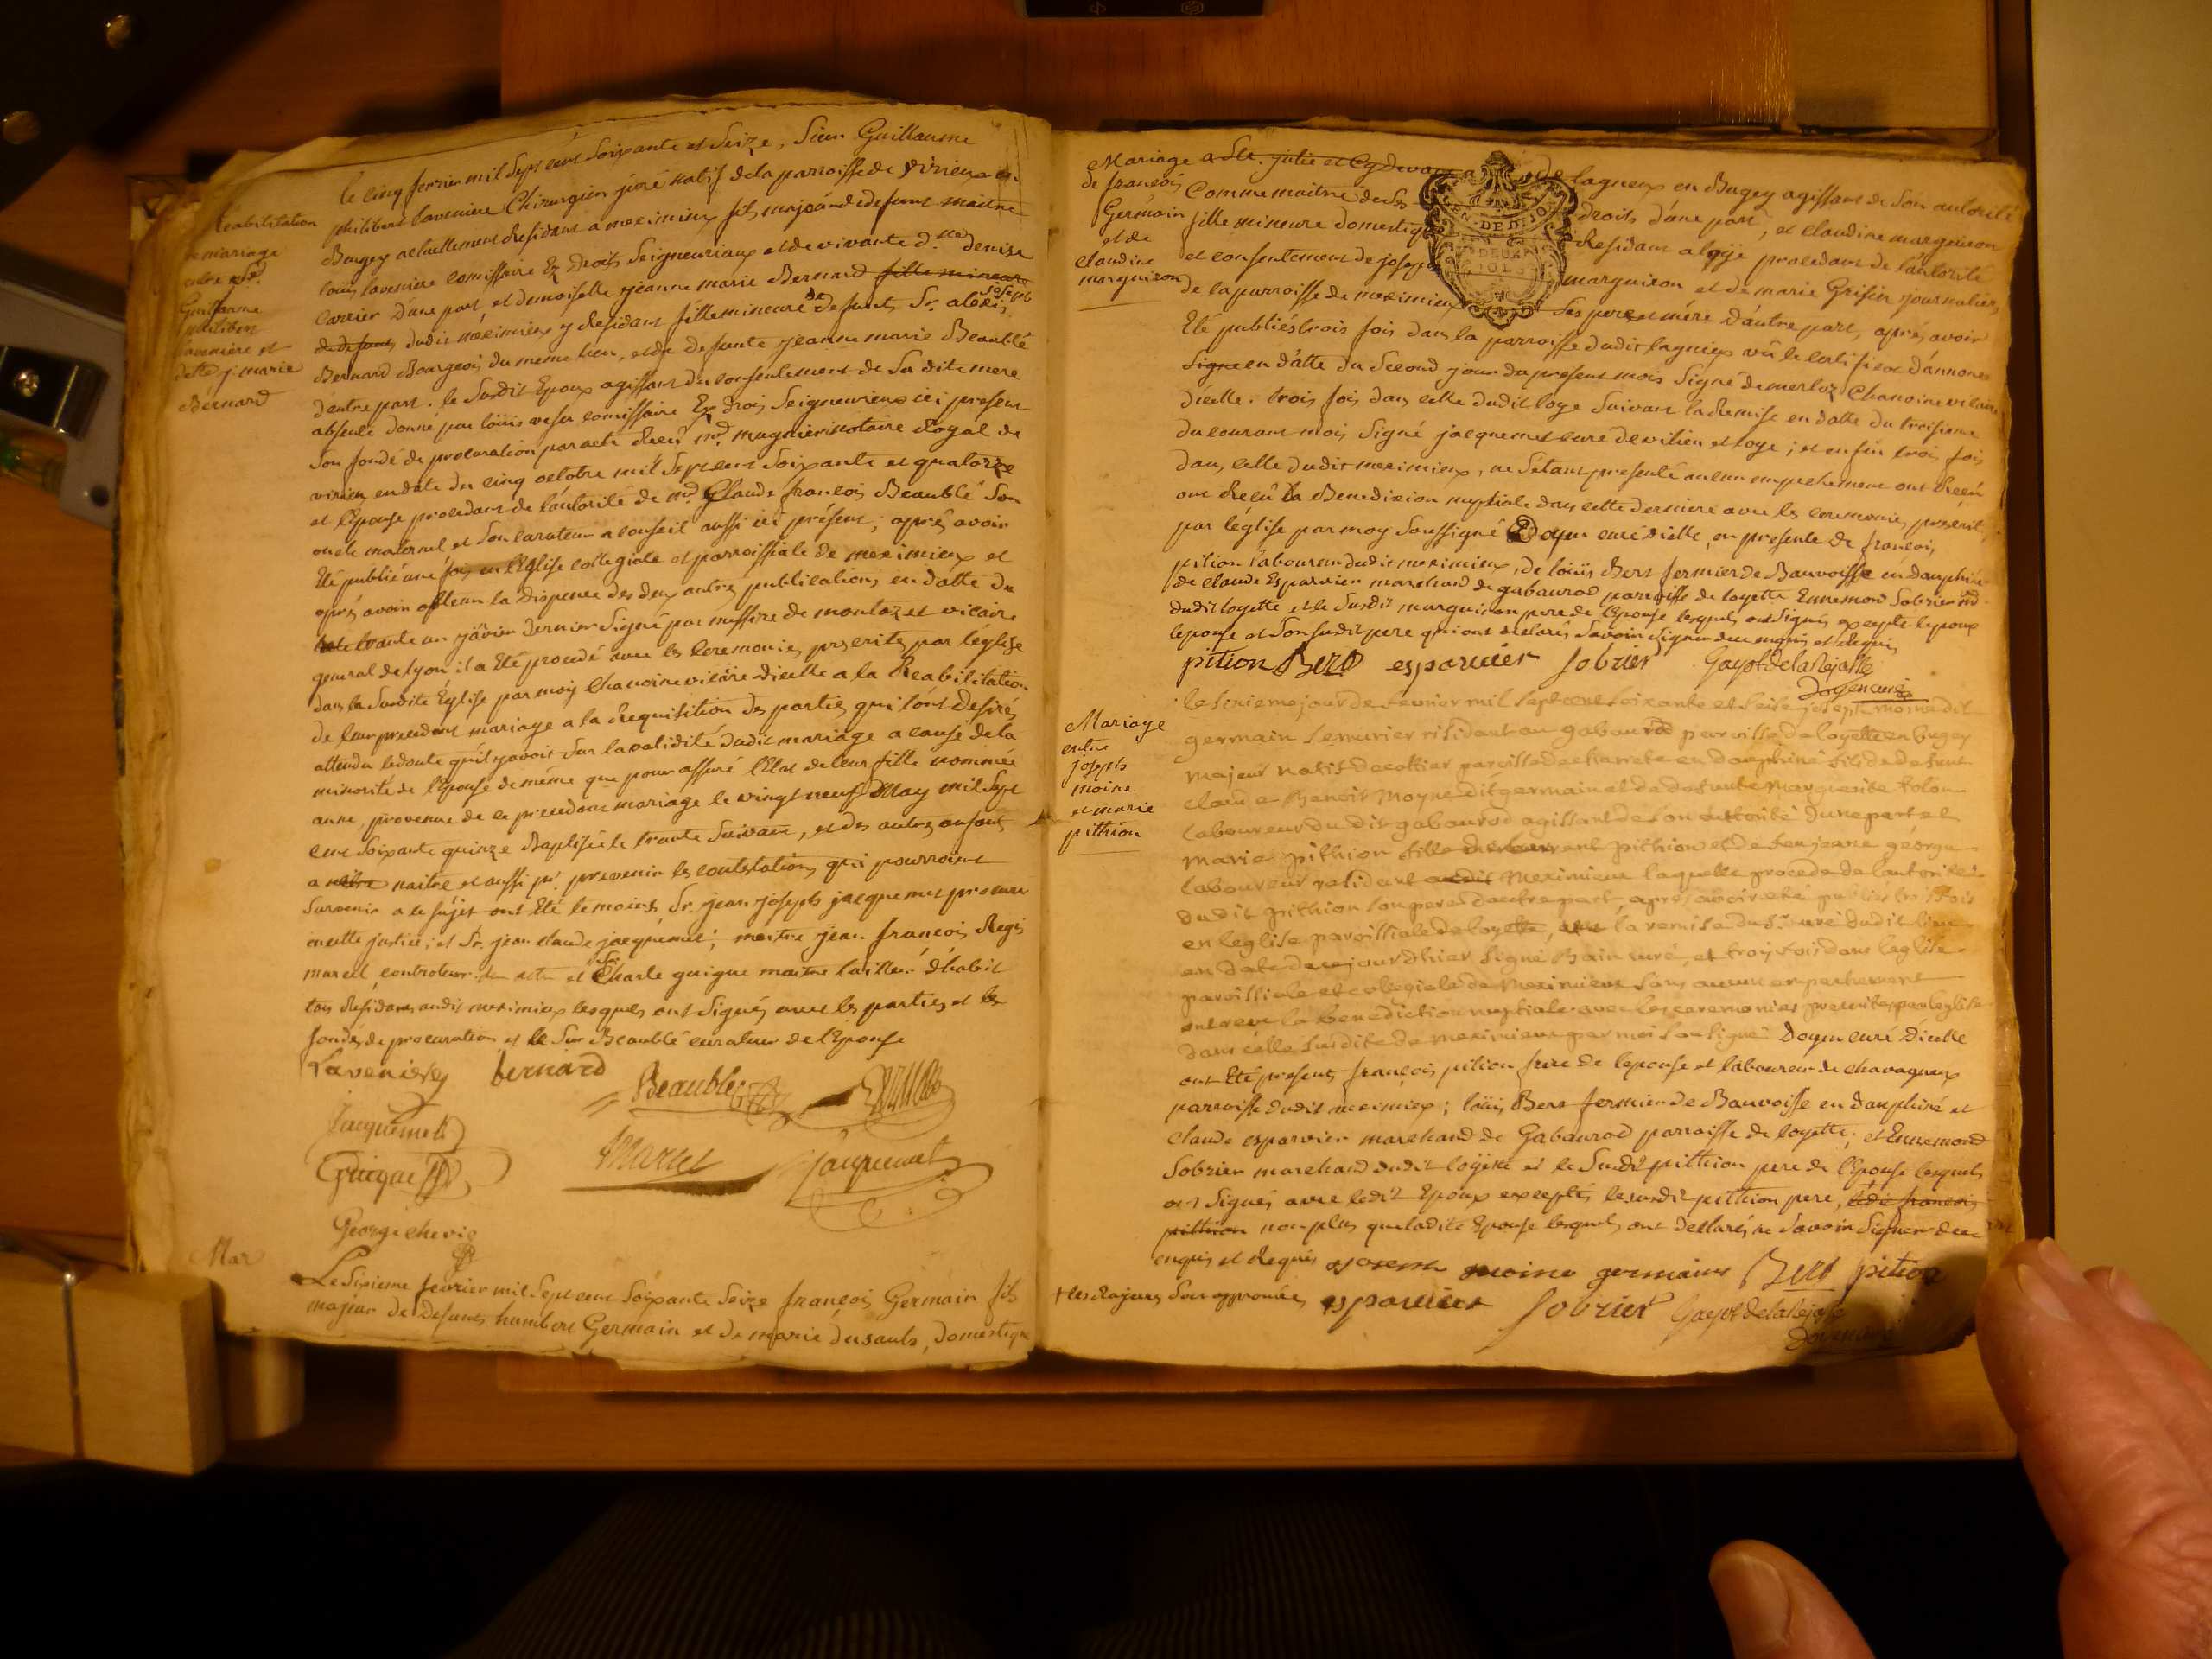 le cinq fevrier mil sept cent soixante et seize, sieur Guillaume
philibert laveniere Chirurgien juré natif de la parroisse de virieux en
Bugey actuellement Residant a meximieux fils majeur de defunt maitre
loüis laveniere comissaire Ez Droits seigneuriaux et de vivante d.lle denise
carrier d'une part, et demoiselle jeanne marie Bernard fille mineure
de defunt dudit meximieux y Residant fille mineure de defunts Sr. alexis joseph
Bernard Bourgeois du meme lieu, et de defunte jeanne marie Beaublé
d'autre part. le susdit Epoux agissant du consentement de sa dite mere
absente donné par loüis comissaire Ez Droits seigneuriaux ici present
son fondé de procuration par acte Receu md. magnier notaire Royal de
virieu en date du cinq octobre mil sept cent soixante et quatorze
et l'epouse procedant de l'autorité de md. Claude françois Beaublé son
oncle maternel et son curateur a conseil aussi ici présent; après avoir
Eté publié une fois en l'Eglise collegiale et parroissiale de meximieux et
après avoir obtenu la dispense des deux autres publications en datte du
trente un janvier dernier signé par messire de montazet vicaire
general de lyon il a Eté procedé avec les ceremonies prescrites par l'église
dans la susdite Eglise par moy Chanoine vicaire d'icelle a la Reabilitation
de leur precedent mariage a la Requisition des parties qui l'ont Desirés
attendu le doute qu'il y avoit sur la validité dudit mariage a cause de la
minorité de l'Epouse de même que pour assuré l'Etat de leur fille nommée
anne, provenue de ce precedent mariage le vingt neuf May mil sept
cent soixante quinze Baptisée le trente suivant, et des autres enfants
a naître naitre et aussi pr. prevenir les contestations qui pourroient
survenir a ce sujet ont Eté temoins, Sr. jean joseph jacquemet procureur
en cette justice; et Sr. jean claude jacquemet; maitre jean françois Regis
marcel controleur des actes et Sr. Charle guigue maitre tailleur d'habit
tous Residants audit meximieux lesquels ont signés avec les parties et le
fondé de procuration et le Sieur Beaublé curateur de l'Epouse
Laveniere bernard Beaublé
Jacquemet
Guigue Marcel Jacquemet
George
Mar
Le sixieme fevrier mil sept cent soixante seize françois Germain fils
majeur de defunts humbert Germain et de marie dusault, domestique
Reabilitation
de mariage
entre
Guillaume
philibert
laveniere et
dlle j. marie
Bernard
Mariage
de françois
Germain
et de
claudine
marguiron
a Ste. julie et cydevant a de lagneux en Bugey agissant de son autorité
Comme maitre de ses droits d'une part, et claudine marguiron
fille mineure domestique Residant a loye procedant de l'autorité
et consentement de joseph marguiron et de marie Grifin journaliers
de la parroisse de meximieux ses pere et mére d'autre part, après avoir
GEN. DE DIJON
DEUX
SOLS
Eté publiés trois fois dans la parroisse dudit lagnieux vû le certificat d'annonces
signé en datte du second jour du present mois signé demerloz Chanoine vicaire
d'icelle. trois fois dans celle dudit loye suivant la Remise en datte du troisieme
du courant mois signé jacquemet curé de vilieu et loye; et enfin trois fois
dans celle dudit meximieux, ne s'étant presenté aucun empechement ont Receu
ont Reçû la Benediction nuptiale dans cette derniere avec les ceremonies prescrites
par l'église par moy soussigné Doyen curé d'icelle, en presence de françois
pition laboureur dudit meximieux, de loüis Bert fermier de Bauvoisse en dauphiné
de claude Esparvier marchand de gabaurod parroisse de loyette Ennemond sobrier md.
dudit loyette et le susdit marguiron pere de l'Epouse lesquels ont signés excepté l'epoux
l'epouse et son susdit pere qui ont declarés savoir signer de ce enquis et Requis
pition Bert esparvier sobrier Gayot de la Rejasse
Doyen curé
Mariage
entre
joseph
moine
et marie
pithion
le sixieme jour de fevrier mil sept cent soixante et seise joseph moine dit
germain serrurier residant au gabaurod paroisse de loyette en bugey
majeur natif de paroisse de en dauphiné fils de defunt
claude Benoit Moyne dit germain et de defunte Marguerite
laboureur du dit gabaurod agissant de son autorité d'une part et
Marie pithion fille de pithion et de jeane george
laboureur residant audit Meximieux laquelle procede de l'autorité
du dit pithion son pere d'autre part, apres avoir eté publiés trois fois
en leglise paroissiale de loyette, la remise du Sr curé dudit lieu
en date de ce jourdhier signé Bain curé, et trois fois dans leglise
paroissiale et collegiale de Meximieux sans aucun empechement
ont receu la benediction nuptiale avec les ceremonies prescrites par leglise
dans celle susdite de meximieux par moi soussigné Doyen curé d'icelle
ont Eté presents françois pition frere de l'epouse et laboureur de chavagneux
parroisse dudit meximieux; loüis Bert fermier de Bauvoisse en dauphiné et
claude esparvier marchand de Gabaurod parroisse de loyette; et Ennemond
sobrier marchand dudit loyette et le susdit pithion pere de l'Epouse lesquels
ont signés avec ledit Epoux exceptés le susdit pithion pere, ledit françois
pithion non plus que ladite Epouse lesquels ont declarés ne savoir signer de ce
enquis et Requis joseph moine germain Bert pition
+ les Rayures sont approuvées esparvier sobrier Gayot de la Rejasse
Doyen curé